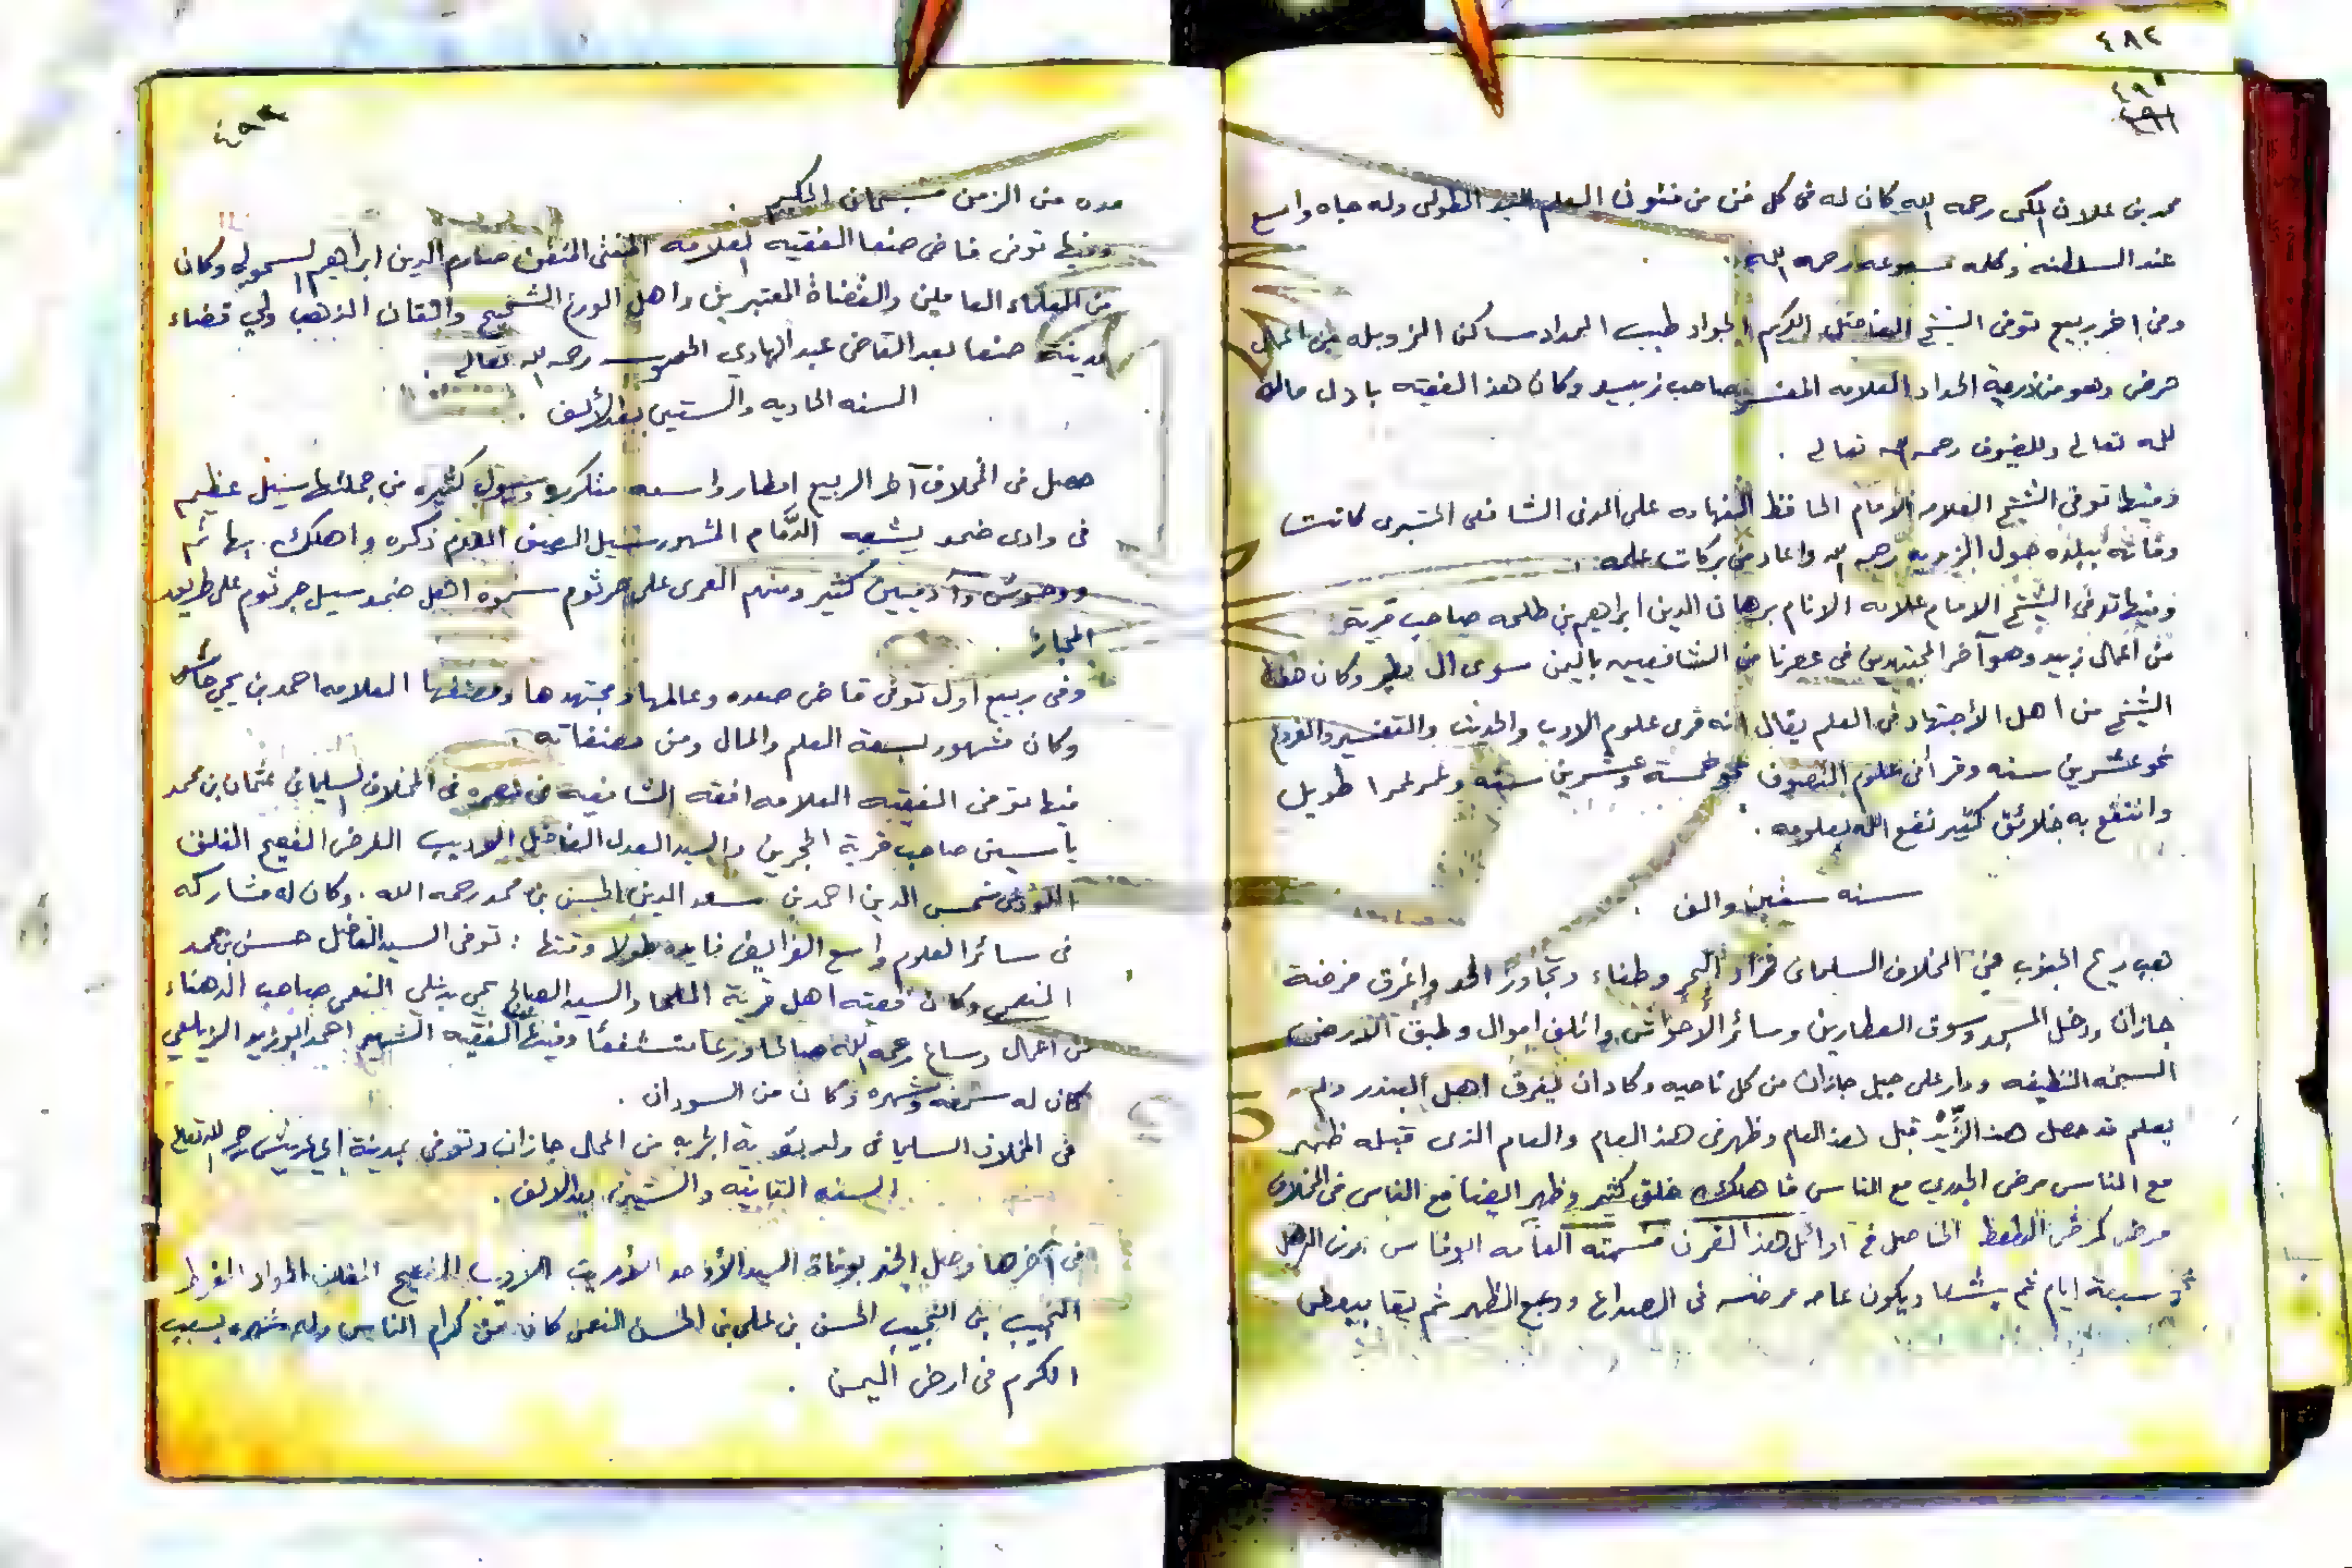 ٤٨٢
٤٩٢
محمد بن علان المكي رحمه الله كان له في كل فن من فنون العلم اليد الطولى وله جاه واسع
عند السلطنه وكلمه مسموعه رحمه الله .
وفي اخر ربيع توفى الشيخ الفاضل الكريم الجواد طبيب الحداد ساكن الزوبله من اعمال
حرض وهو من ذرية الحداد العلامه المفسر صاحب زبيد وكان هذا الفقيه باذل ماله
لله تعالى وللضيوف رحمه الله تعالى .
وفيها توفى الشيخ العلامه الامام الحافظ على الشافعى كانت
وفاته ببلده حول رحمه الله واعاد من بركات علمه .
وفيها توفى الشيخ الامام علامه الانام برهان الدين ابراهيم بن طلحه صاحب قرية
من اعمال زبيد وهو آخر المجتهدين فى عصرنا من الشافعيه باليمن سوى ال مطير وكان هذا
الشيخ من اهل الأجتهاد في العلم يقال انه قرى علوم الادب والحديث والتفسير والفروع
نحو عشرين سنه وقرأ في علوم التصوف نحو خمسة وعشرين سنه وعمر عمرا طويل
وانتفع به خلائق كثير نفع الله بعلومه .
سنه ستين والف .
هب ريح الجنوب في المخلاف السليمانى فزاد البحر وطغاء وتجاوز الحد واغرق فرضة
جازان ودخل المسجد وسوق العطارين وسائر الأحواش واتلف اموال وطبق الارض
السبخه النظيفه ودار على جبل جازان من كل ناحيه وكاد ان يغرق اهل البندر ولم
يعلم قد حصل هذا الزيد قبل هذا العام وظهر في هذا العام والعام الذى قبله ظهر
مع الناس مرض الجدري مع الناس فاهلك خلق كثير وظهر ايضا مع الناس في المخلاف
مرض كمرض الحاصل في اوائل هذا القرن فسمته العامه ابو فاس
نحو سبعة ايام ثم يشفا ويكون عامه مرضه فى الصداع ووجع الظهر ثم بقا ببعض
٤٩٣
مده من الزمن فسبحان الحكيم .
وفيها توفى قاضى صنعا الفقيه العلامه المتقن صارم الدين ابراهيم السحولي وكان
من العلماء العاملين والقضاة المعتبرين واهل الورع الشحيح واتقان المذهب ولي قضاء
مدينة صنعا بعد القاضى عبد الهادي رحمه الله تعالى .
السنه الحاديه والستين بعد الألف .
حصل فى المخلاف آخر الربيع امطار واسعه متكرره وسيول كثيره من جملتها سيل عظيم
فى وادى ضمد يشبه الدمام المشهور بسيل الصيف المقدم ذكره واهلك بهائم
ووحوش وآدميين كثير ومنهم العرى على جرثوم سموه اهل ضمد سيل جرثوم على طريق
المجاز .
وفى ربيع اول توفى قاضى صعده وعالمها ومجتهدها ومصنفها العلامه احمد بن يحيى حابس
وكان مشهور بسعة العلم والمال ومن مصنفاته .
فيها توفى الفقيه العلامه افقه الشافعيه في عصره فى المخلاف السليماني عثمان بن محمد
ياسين صاحب قرية الحجرين والسيد العدل الفاضل الاديب الفصيح
شمس الدين احمد بن سعد الدين الحسين بن محمد رحمه الله . وكان له مشاركه
فى سائر العلوم واسع الفرايض توفى السيد الفاضل حسن بن محمد
النعمي وكان فقيه اهل قرية الملحا والسيد الصالح يحيى بن علي النعمى صاحب الدهناء
من اعمال وساع رحمه الله صالحا ورعا متشفعا وفيها الفقيه الشهير احمد ابو زيد الزيلعي
كان له شرفه وشهره وكان من السودان .
فى المخلاف السليمانى ولد بقرية الجربه من اعمال جازان وتوفى بمدينة ابي عريش رحمه الله تعالى
السنه الثانيه والستين بعد الالف .
فى آخرها وصل الخبر بوفاة السيد الأوحد الاديب الفصيح الجواد المفرط
النجيب بن النجيب الحسن بن على بن الحسن النعمى كان من كرام الناس وله شهره بسبب
الكرم فى ارض اليمن .